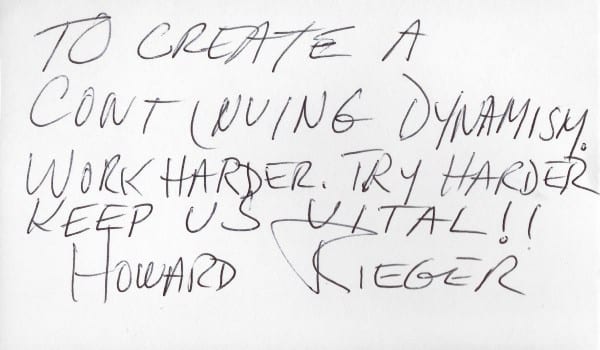 TO CREATE A
CONTINUING DYNAMISM.
WORK HARDER. TRY HARDER
KEEP US VITAL!!
HOWARD RIEGER